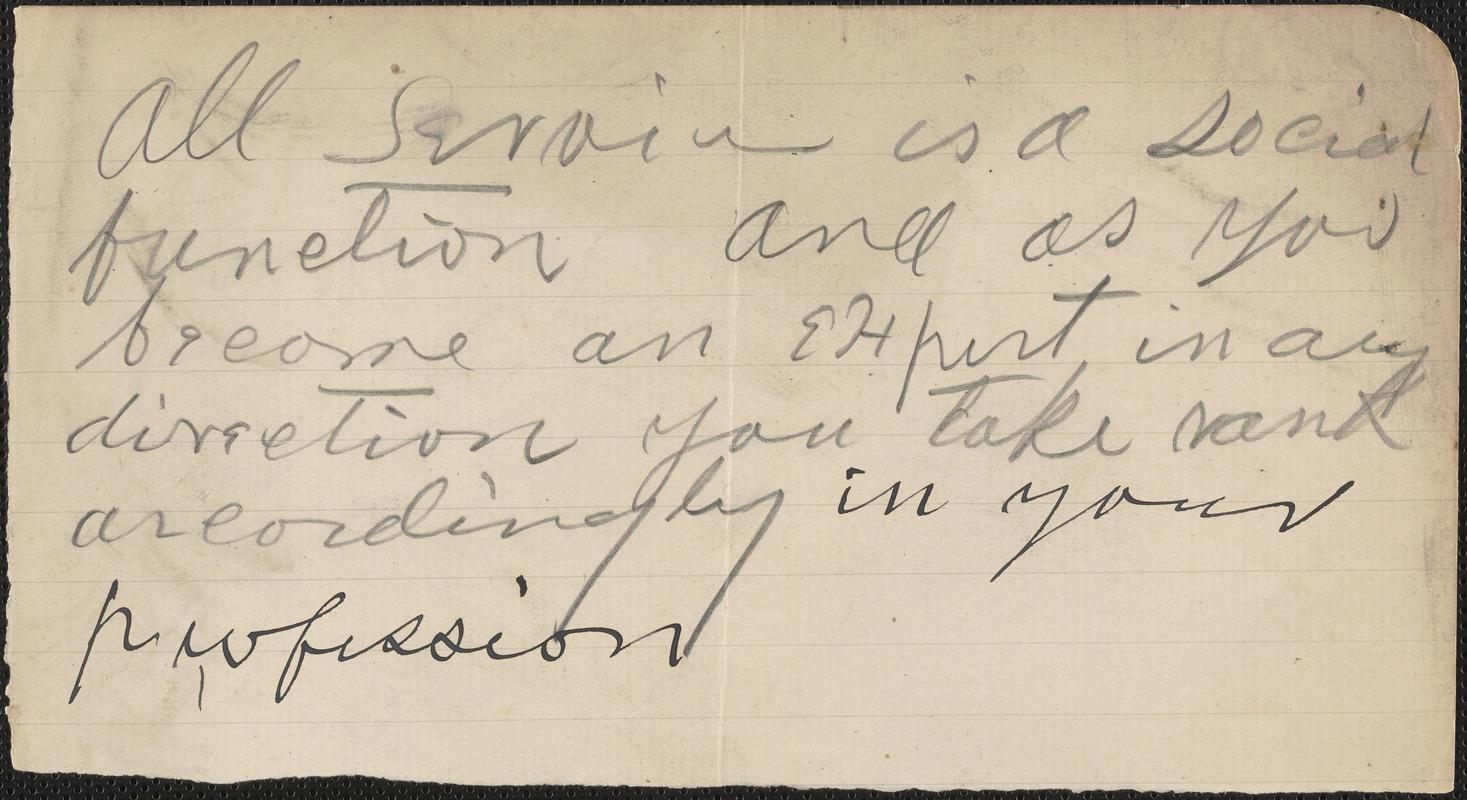 All Service is a social
function and as you
become an Expert in any
direction you take rank
accordingly in your
profession